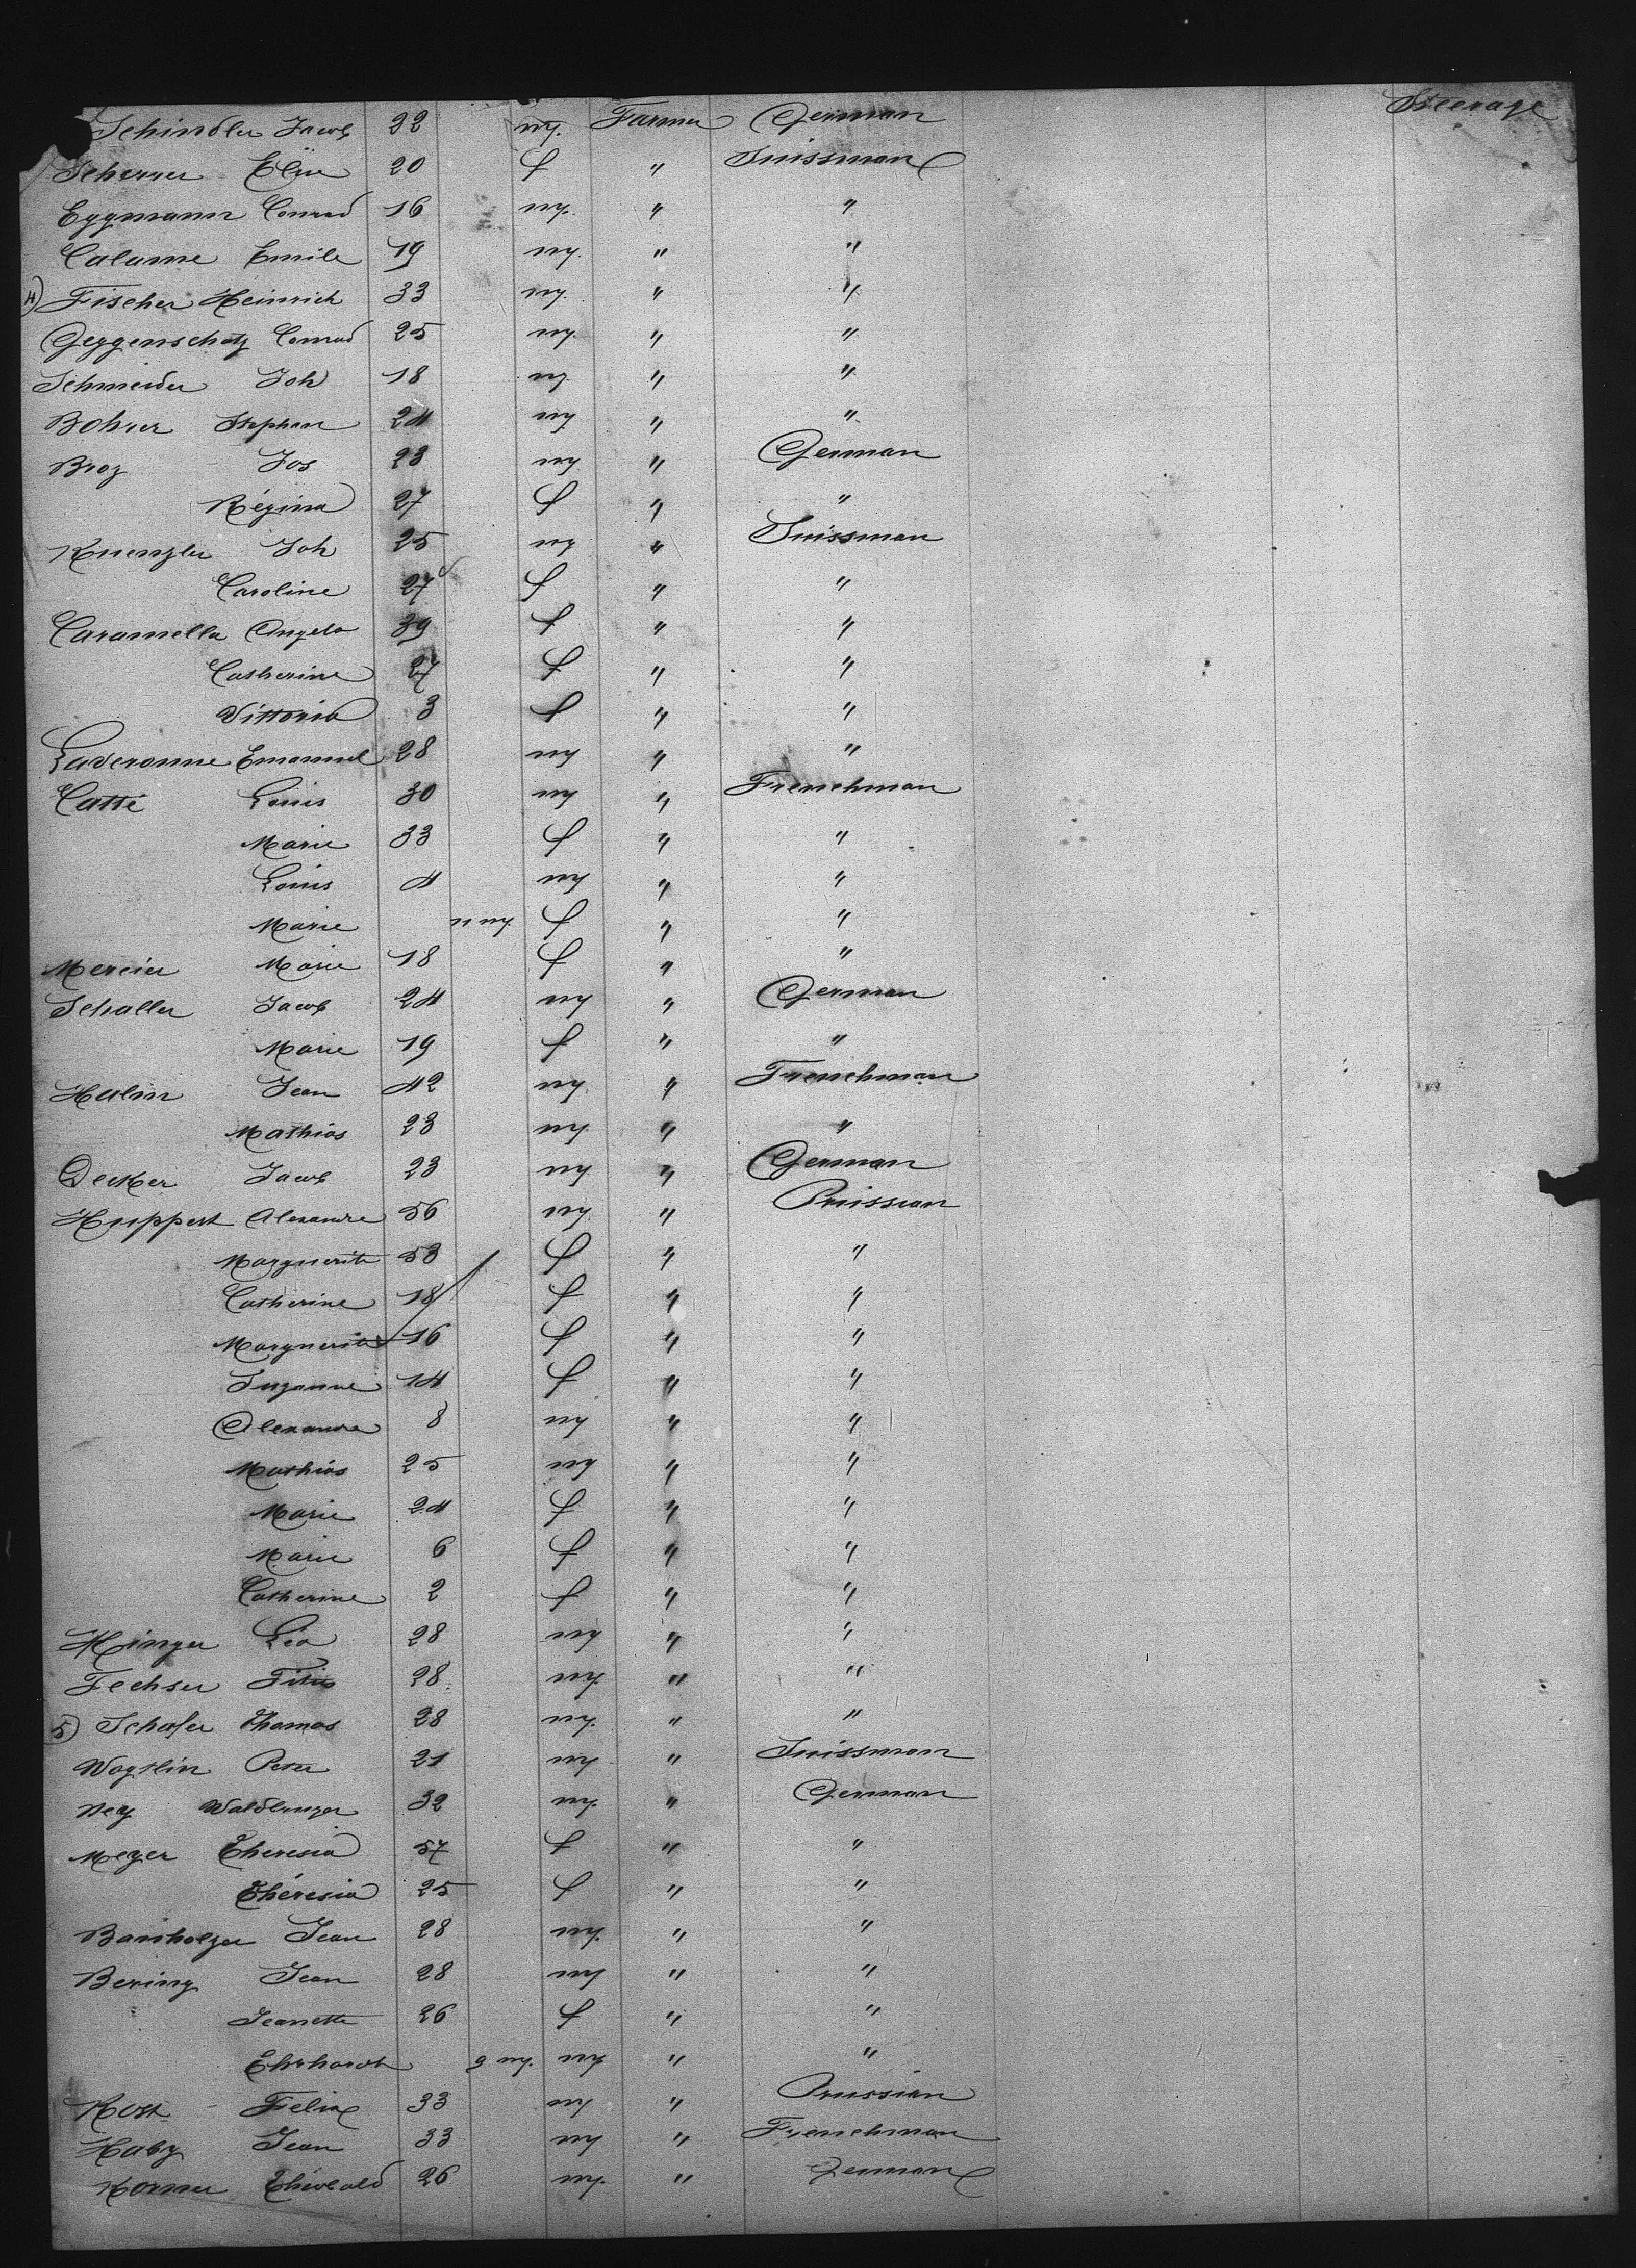 Schindler Jacob 22 m. Farmer German Steerage
Scherrer Elise 20 f " Suissman
Eggmann Conrad 16 m. " "
Calame Emile 19 m. " "
4) Fischer Heinrich 33 m. " "
Geggenschatz Conrad 25 m. " "
Schneider Joh 18 m " "
Bohrer Stephan 24 m " "
Broz Jos 23 m " German
Régina 27 f " "
Kuenzler Joh 25 m " Suissman
Caroline 27 f " "
Caramella Angela 39 f " "
Catherine 27 f " "
Vittoria 3 f " "
Laderonne Emanuel 28 m " "
Catté Louis 30 m " Frenchman
Marie 33 f " "
Louis 4 m " "
Marie 11 m. f " "
Mercier Marie 18 f " "
Schaller Jacob 24 m " German
Marie 19 f " "
Heslin Jean 42 m " Frenchman
Mathias 23 m. " "
Decker Jacob 23 m " German
Huppert Alexandre 56 m " Pruissian
Marguerite 53 f " "
Catherine 18 f " "
Marguerite 16 f " "
Suzanne 14 f " "
Alexandre 8 m " "
Mathias 25 m " "
Marie 24 f " "
Marie 6 f " "
Catherine 2 f " "
Hinger Léo 28 m " "
Fechser Titus 28 m. " "
5) Schafer Thomas 28 m. " "
Wogtlin Peter 21 m " Suissman
Ney Waldburger 32 m. " German
Meyer Theresia 57 f " "
Théresia 25 f " "
Banholzer Jean 28 m. " "
Bering Jean 28 m " "
Jeannette 26 f " "
Ehrhardt 9 m. m " "
Kost Felix 33 m " Prussian
Haby Jean 33 m " Frenchman
Korner Thiebald 26 m. " German